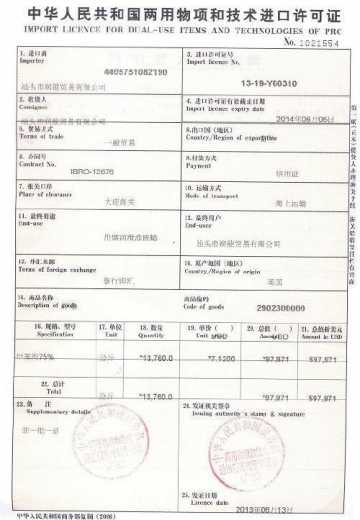 中华人民共和国两用物项和技术进口许可证
IMPORT LICENCE FOR DUAL-USE ITEMS AND TECHNOLOGIES OF PRC
No. 1021554
1. 进口商
Importer
4405751082190
汕头市润能贸易有限公司
3. 进口许可证号
Import licence No.
13-19-Y00310
2. 收货人
Consignee
4. 进口许可证有效截止日期
Import licence expiry date
2014年06月06日
5. 贸易方式
Terms of trade
一般贸易
8. 出口国（地区）
Country/Region of exportation
6. 合同号
Contract No.
IBRO-12676
9. 付款方式
Payment
信用证
7. 报关口岸
Place of clearance
大连海关
10. 运输方式
Mode of transport
海上运输
11. 最终用途
End-use
12. 最终用户
End-user
汕头市润能贸易有限公司
13. 外汇来源
Terms of foreign exchange
银行购汇
14. 原产地国（地区）
Country/Region of origin
美国
15. 商品名称
Description of goods
商品编码
Code of goods
2902300000
16. 规格、型号
Specification
17. 单位
Unit
18. 数量
Quantity
19. 单价（ ）
Unit
20. 总值（ ）
Amount
21. 总值折美元
Amount in USD
公斤
*13,760.0
*7.1200
*97,971
$97,971
22. 总计
Total
公斤
*13,760.0
*97,971
$97,971
23. 备 注
Supplementary details
非一批一证
24. 发证机关签章
Issuing authority's stamp & signature
25. 发证日期
Licence date
2013年06月13日
中华人民共和国商务部监制（2006）